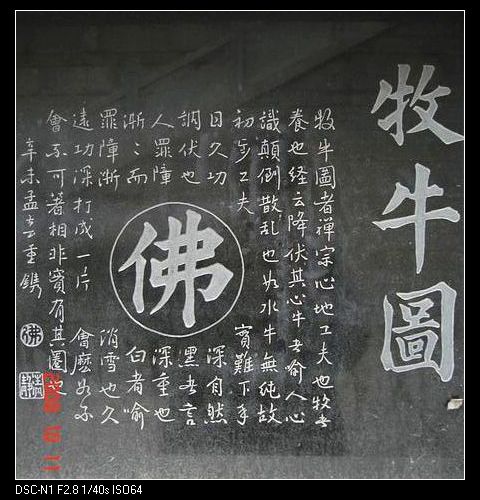 牧牛圖
牧牛圖者禪宗心地工夫也牧者
養也経云降伏其心牛者喻人心
識顛倒散乱也如水牛無純故
初步工夫 實難下手
日久功 深自然
調伏也 黑者言
人罪障 深重也
漸〻而 白者喻
罪障漸 消雪也久
遠功深打成一片 會麼如不
會不可著相非實有其圖
辛未孟 重鐫
佛
佛
DSC-N1 F2.8 1/40s ISO64